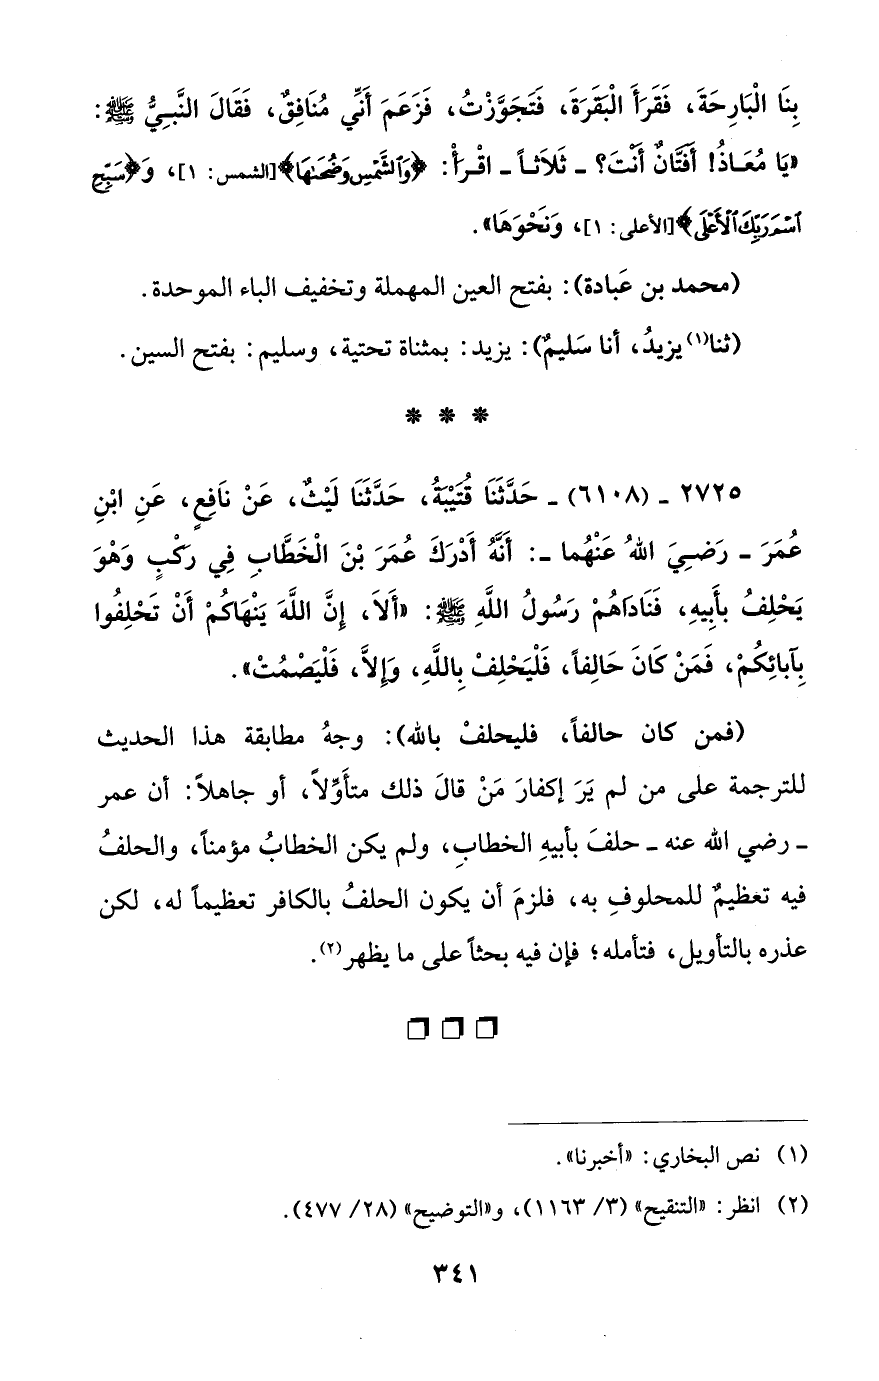 بِنَا الْبَارِحَةَ، فَقَرَأَ الْبَقَرَةَ، فَتَجَوَّزْتُ، فَزَعَمَ أَنِّي مُنَافِقٌ، فَقَالَ النَّبِيُّ ﷺ:
«يَا مُعَاذُ! أَفَتَّانٌ أَنْتَ؟ - ثَلَاثاً - اقْرَأْ: ﴿وَٱلشَّمْسِ وَضُحَىٰهَا﴾[الشمس: ١]، وَ﴿سَبِّحِ
ٱسْمَ رَبِّكَ ٱلْأَعْلَى﴾[الأعلى: ١]، وَنَحْوَهَا».
(محمد بن عَبادة): بفتح العين المهملة وتخفيف الباء الموحدة.
(ثنا(١) يزيدُ، أنا سَليمٌ): يزيد: بمثناة تحتية، وسليم: بفتح السين.
* * *
٢٧٢٥ - (٦١٠٨) - حَدَّثَنَا قُتَيْبَةُ، حَدَّثَنَا لَيْثٌ، عَنْ نَافِعٍ، عَنِ ابْنِ
عُمَرَ - رَضِيَ اللهُ عَنْهُما -: أَنَّهُ أَدْرَكَ عُمَرَ بْنَ الْخَطَّابِ فِي رَكْبٍ وَهْوَ
يَحْلِفُ بِأَبِيهِ، فَنَادَاهُمْ رَسُولُ اللَّهِ ﷺ: «أَلَا، إِنَّ اللَّهَ يَنْهَاكُمْ أَنْ تَحْلِفُوا
بِآبائِكُمْ، فَمَنْ كَانَ حَالِفاً، فَلْيَحْلِفْ بِاللَّهِ، وَإِلاَّ، فَلْيَصْمُتْ».
(فمن كان حالفاً، فليحلفْ بالله): وجهُ مطابقة هذا الحديث
للترجمة على من لم يَرَ إكفارَ مَنْ قالَ ذلك متأوِّلاً، أو جاهلاً: أن عمر
- رضي الله عنه - حلفَ بأبيهِ الخطابِ، ولم يكن الخطابُ مؤمناً، والحلفُ
فيه تعظيمٌ للمحلوفِ به، فلزمَ أن يكون الحلفُ بالكافر تعظيماً له، لكن
عذره بالتأويل، فتأمله؛ فإن فيه بحثاً على ما يظهر(٢).
(١) نص البخاري: «أخبرنا».
(٢) انظر: «التنقيح» (٣/ ١١٦٣)، و«التوضيح» (٢٨/ ٤٧٧).
٣٤١